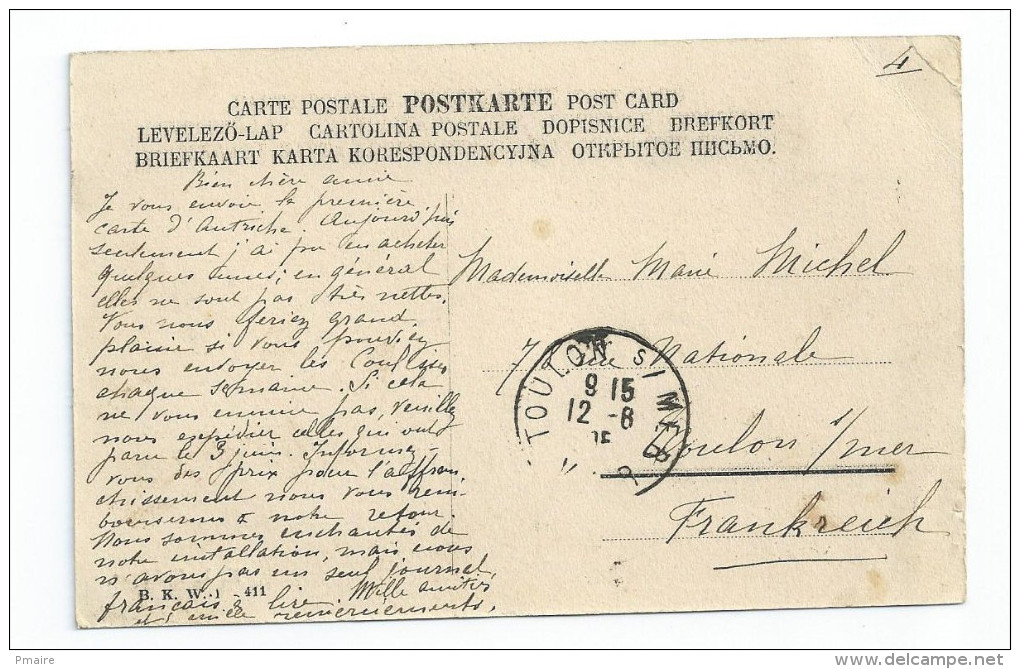 4
CARTE POSTALE POSTKARTE POST CARD
LEVELEZŐ-LAP CARTOLINA POSTALE DOPISNICE BREFKORT
BRIEFKAART KARTA KORESPONDENCYJNA ОТКРЫТОЕ ПИСЬМО.
Bien chère amie
Je vous envoie la première
carte d'Autriche. Aujourd'hui
seulement j'ai pu en acheter
quelques unes; en général
elles ne sont pas très nettes.
Vous nous feriez grand
plaisir si vous pouviez
nous envoyer les
chaque semaine. Si cela
ne vous ennuie pas, veuillez
nous expédier celles qui ont
paru le 3 juin. Informez-
vous des prix pour l'affran
chissement nous vous rem-
bourserons à notre retour.
Nous sommes enchantés de
notre installation, mais nous
n'avons pas un seul journal
français à lire. Mille amitiés
et remerciements.
B. K. W. I. 411
Mademoiselle Marie Michel
7 Rue Nationale
Toulon s/mer
Frankreich
TOULON S/MER
9 15
12 -8
Pmaire
www.delcampe.net